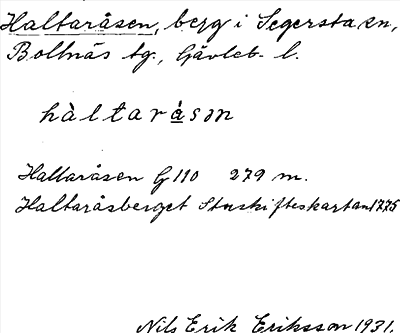 Haltaråsen, berg i Segersta sn,
Bollnäs tg., Gävleb. l.
hàltarå̀sən
Haltaråsen G 110 279 m.
Haltaråsberget Storskifteskartan 1775
Nils Erik Eriksson 1931.